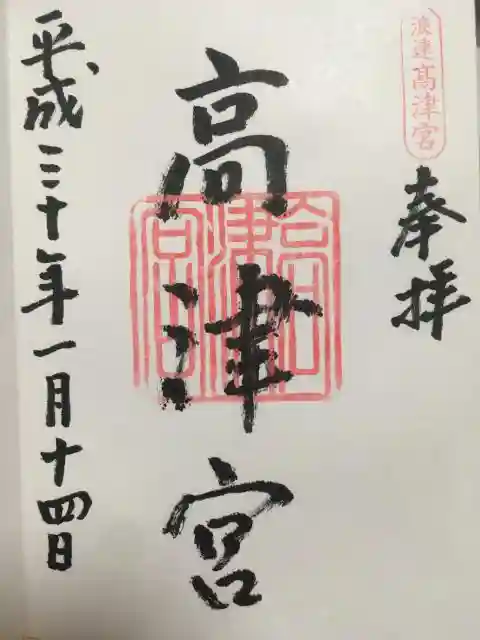 浪速高津宮
奉拝
高津宮
高津宮
平成三十年一月十四日